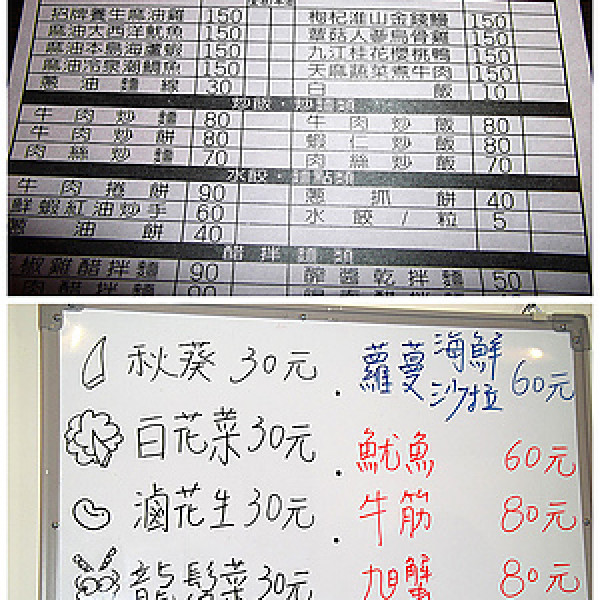 招牌養生麻油雞 150 枸杞淮山金錢鰻 150
麻油大西洋魷魚 150 蘑菇人蔘烏骨雞 150
麻油本島海鱸鰕 150 九江桂花櫻桃鴨 150
麻油冷泉潮鯛魚 150 天麻蔬菜煮牛肉 150
蔥油麵線 30 白飯 10
炒飯・炒麵類
牛肉炒麵 80 牛肉炒飯 80
牛肉炒餅 80 蝦仁炒飯 80
肉絲炒麵 70 肉絲炒飯 70
水餃・麵點類
牛肉捲餅 90 蔥抓餅 40
鮮蝦紅油炒手 60 水餃/粒 5
蔥油餅 40
醋拌麵類
椒雞醋拌麵 90 醡醬乾拌麵 50
肉醋拌麵 90
秋葵 30元 蘿蔓海鮮沙拉 60元
白花菜 30元 魷魚 60元
滷花生 30元 牛筋 80元
龍鬚菜 30元 旭蟹 80元